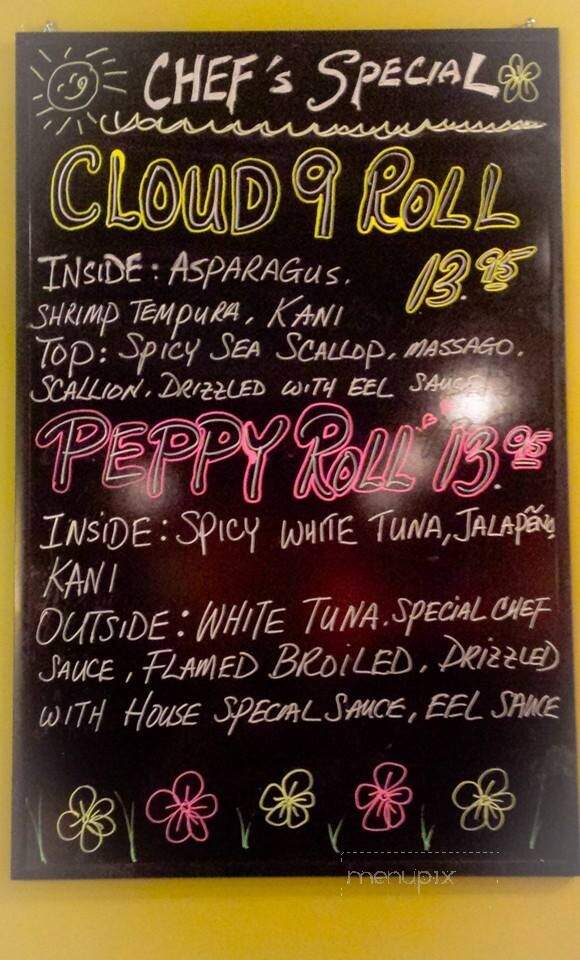 CHEF's SPECIAL
CLOUD 9 ROLL
INSIDE: ASPARAGUS. 13.95
SHRIMP TEMPURA. KANI
TOP: SPICY SEA SCALLOP. MASSAGO.
SCALLION. DRIZZLED WITH EEL SAUCE
PEPPY ROLL 13.95
INSIDE: SPICY WHITE TUNA, JALAPEÑO
KANI
OUTSIDE: WHITE TUNA. SPECIAL CHEF
SAUCE, FLAMED BROILED. DRIZZLED
WITH HOUSE SPECIAL SAUCE, EEL SAUCE
menupix